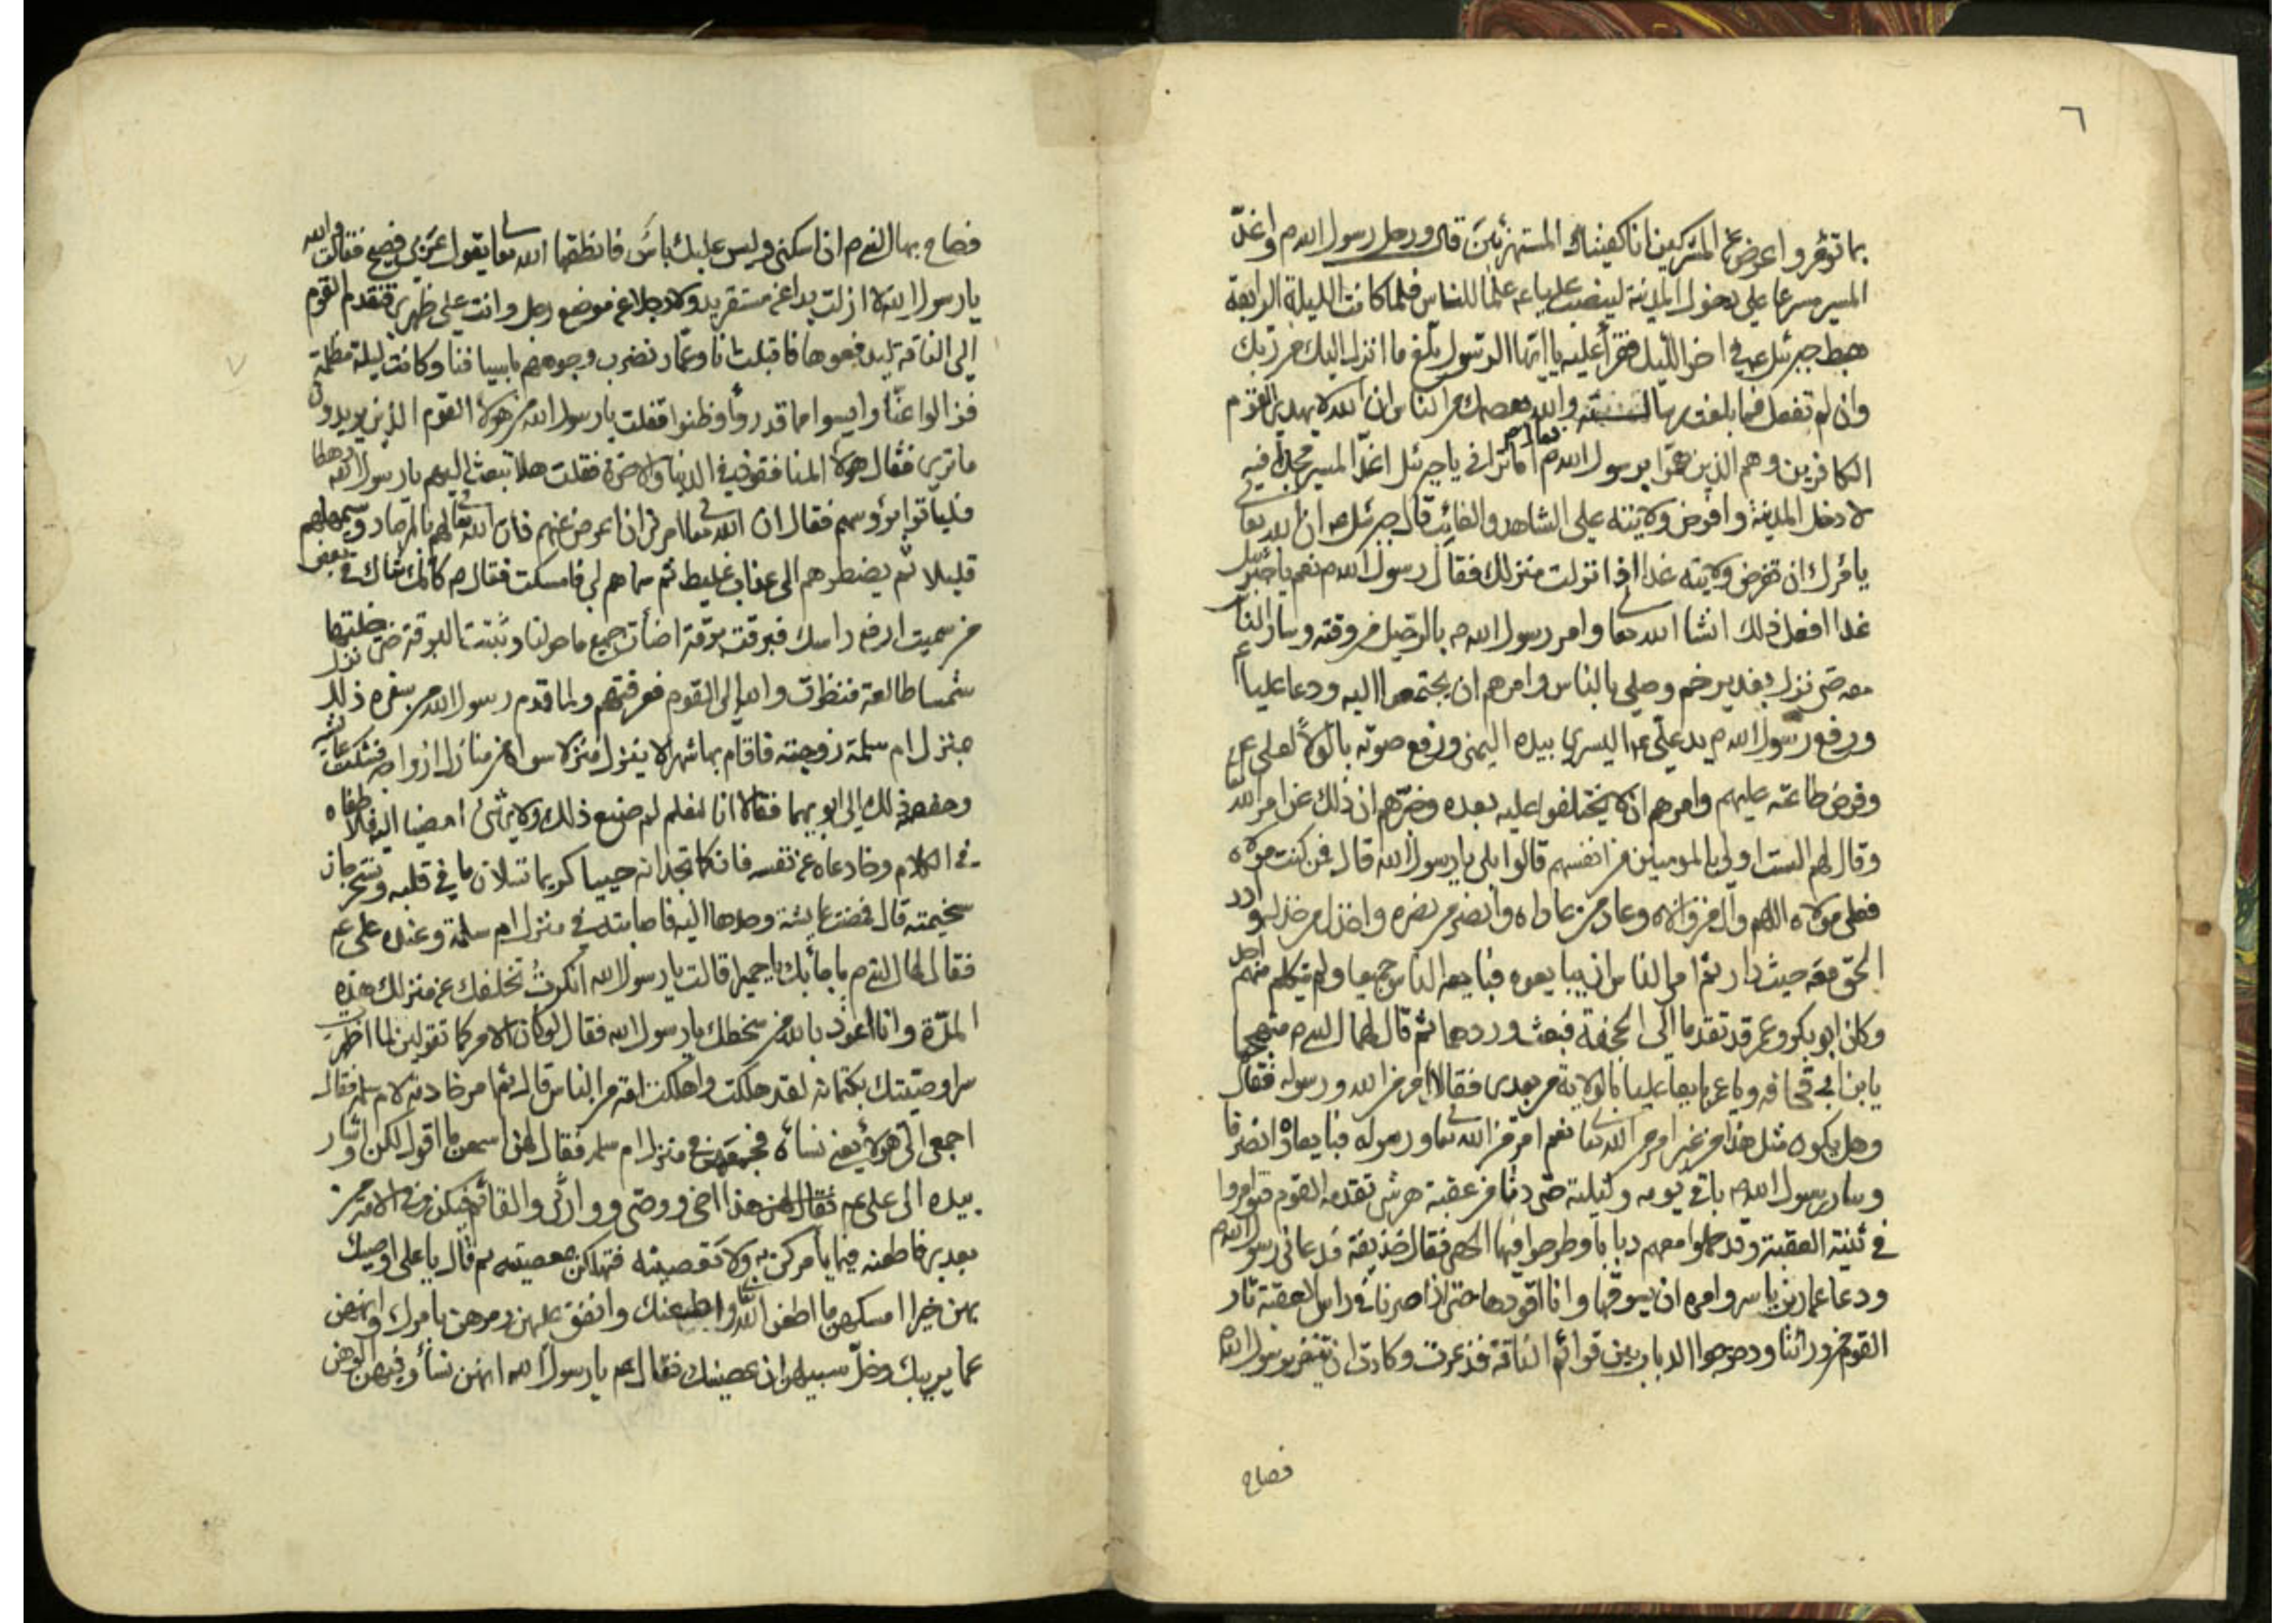 ٦
بما تؤمر واعرض عن المشركين انا كفيناك المستهزئين قال ورحل رسول الله ص واغذّ
المسير مسرعا على دخول المدينة لينصب عليا ع علما للناس فلما كانت الليلة الرابعة
هبط جبرئيل ع في اخر الليل فقرأ عليه يا ايها الرسول بلّغ ما انزل اليك من ربك
وان لم تفعل فما بلغت رسالته والله يعصمك من الناس ان الله لا يهدي القوم
الكافرين وهم الذين همّوا برسول الله ص فقال ص اما تراني يا جبرئيل اغذّ المسير مجدّا فيه
لادخل المدينة وافرض ولايته على الشاهد والغائب قال جبرئيل ع ان الله تعالى
يامرك ان تفرض ولايته غدا اذا نزلت منزلك فقال رسول الله ص نعم يا جبرئيل
غدا افعل ذلك انشا الله تعا وامر رسول الله ص بالرحيل من وقته وسار الناس
معه حتى نزل بغدير خم وصلى بالناس وامرهم ان يجتمعوا اليه ودعا عليا ع
ورفع رسول الله ص يد علي ع اليسرى بيده اليمنى ورفع صوته بالولاء لعلي ع
وفرض طاعته عليهم وامرهم ان لا يختلفوا عليه بعده وخبّرهم ان ذلك عن امر الله تعا
وقال لهم الست اولى بالمومنين من انفسهم قالوا بلى يا رسول الله قال فمن كنت مولاه
فعلي مولاه اللهم وال من والاه وعاد من عاداه وانصر من نصره واخذل من خذله وادر
الحق معه حيث دار ثم امر الناس ان يبايعوه فبايعه الناس جميعا ولم يتكلم منهم احد
وكان ابو بكر وعمر قد تقدما الى الجحفة فبعث وردهما ثم قال لهما النبي ص متهجما
يا بن ابي قحافه ويا عمر بايعا عليا بالولاية من بعدي فقالا امر من الله ورسوله فقال
وهل يكون مثل هذا من غير امر من الله تعا نعم امر من الله تعا ورسوله فبايعا ثم انصرفا
وسار رسول الله ص باقي يومه وليلته حتى دنا من عقبة هرشى تقدمه القوم فتواروا
في ثنية العقبة وقد حملوا معهم دبابا وطرحوا فيها الحصى فقال حذيفة فدعاني رسول الله ص
ودعا عمار بن ياسر وامره ان يسوقها وانا اقودها حتى اذا صرنا في راس العقبة ثار
القوم من ورائنا ودحرجوا الدباب بين قوائم الناقة فذعرت وكادت ان تنفر برسول الله ص
فصاح
٧
فصاح بها النبي ص ان اسكني وليس عليك باس فانطقها الله تعا بقول عربي فصيح فقالت والله
يا رسول الله لا ازلت يدا عن مستقر يد ولا رجلا عن موضع رجل وانت على ظهري فتقدم القوم
الى الناقة ليدفعوها فاقبلت انا وعمار نضرب وجوههم باسيافنا وكانت ليلة مظلمة
فزالوا عنّا وايسوا مما قدروا وظنوا فقلت يا رسول الله من هولاء القوم الذين يريدون
ما ترى فقال هولاء المنافقون في الدنيا والاخرة فقلت هلا تبعث اليهم يا رسول الله رهطا
فلياتوا برؤسهم فقال ان الله تعا امرني ان اعرض عنهم فان الله تعا لهم بالمرصاد وسيمهلهم
قليلا ثم يضطرهم الى عذاب غليظ ثم سماهم لي فامسكت فقال ص كانك شاك في بعض
من سميت ارفع راسك فبرقت برقة اضأت جميع ما حولنا وثبتت البرقة حتى خلتها
شمسا طالعة فنظرت والله الى القوم فعرفتهم ولما قدم رسول الله ص من سفره ذلك نزل
منزل ام سلمة زوجته فاقام بها شهرا لا ينزل منزلا سواه من منازل ازواجه فشكت عائشة
وحفصة ذلك الى ابويهما فقالا انا لنعلم لم صنع ذلك ولاي شئ امضيا اليه فلاطفاه
في الكلام وخادعاه عن نفسه فانكما تجدانه حييا كريما تسلان ما في قلبه وتستخرجان
سخيمته قال فمضت عايشة وحدها اليه فاصابته في منزل ام سلمة وعنده علي ع
فقال لها النبي ص ما جاء بك يا حميرا قالت يا رسول الله انكرتُ تخلفك عن منزلك هذه
المرّة وانا اعوذ بالله من سخطك يا رسول الله فقال لو كان الامر كما تقولين لما اظهرت
سرا وصيتك بكتمانه لقد هلكت واهلكت امة من الناس قال ثم امر خادمة لام سلمه فقال
اجمعي الي هولاء يعني نساءه فجمعتهن في منزل ام سلمه فقال لهن اسمعن ما اقول لكن واشار
بيده الى علي ع فقال لهن هذا اخي ووصيّي ووارثي والقائم فيكن وفي الامة من
بعدي فاطعنه فيما يامركن به ولا تعصينه فتهلكن بمعصيته ثم قال يا علي اوصيك
بهن خيرا امسكهن ما اطعن الله تعا واطعنك وانفق عليهن ومرهن بامرك وانههن
عما يريبك وخلّ سبيلهن ان عصينك فقال ع يا رسول الله انهن نساء وفيهن الوهن